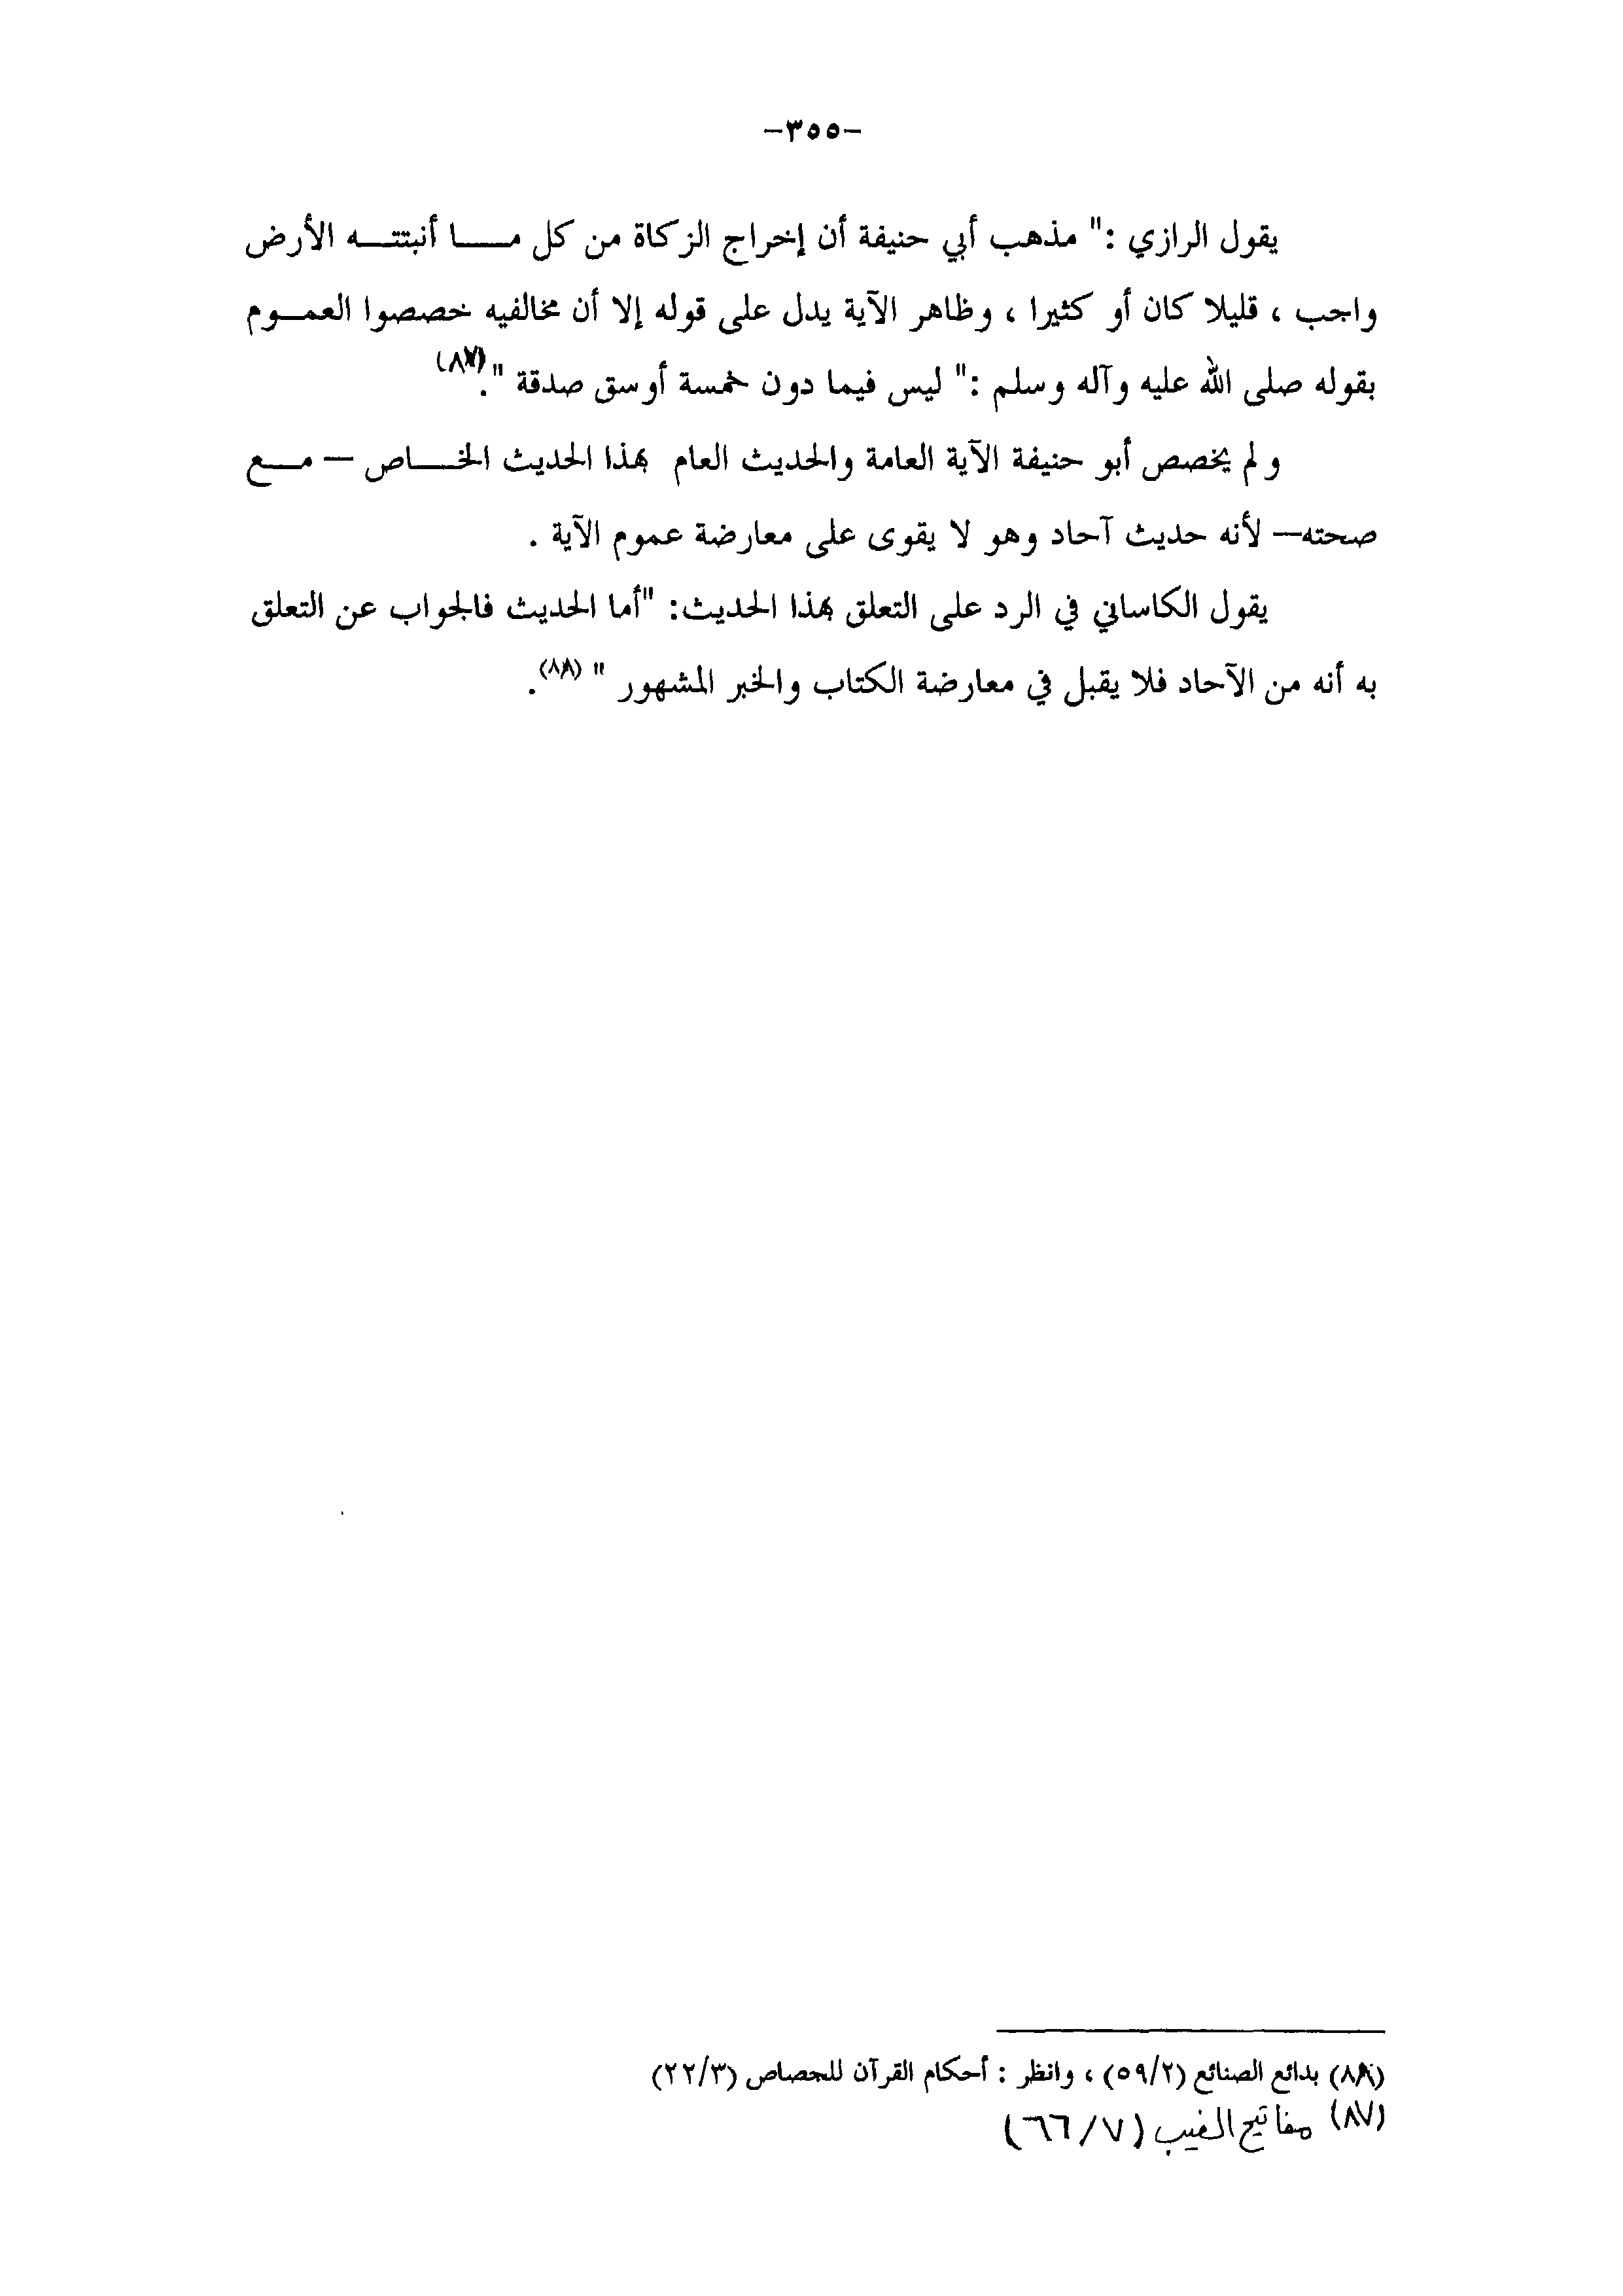 -٣٥٥-
يقول الرازي :" مذهب أبي حنيفة أن إخراج الزكاة من كل مـــا أنبتتـــه الأرض
واجب ، قليلا كان أو كثيرا ، وظاهر الآية يدل على قوله إلا أن مخالفيه خصصوا العمـوم
بقوله صلى الله عليه وآله وسلم :" ليس فيما دون خمسة أوسق صدقة ".(٨٧)
و لم يخصص أبو حنيفة الآية العامة والحديث العام بهذا الحديث الخـــاص – مـــع
صحته– لأنه حديث آحاد وهو لا يقوى على معارضة عموم الآية .
يقول الكاساني في الرد على التعلق بهذا الحديث: "أما الحديث فالجواب عن التعلق
به أنه من الآحاد فلا يقبل في معارضة الكتاب والخبر المشهور " (٨٨).
(٨٨) بدائع الصنائع (٥٩/٢) ، وانظر : أحكام القرآن للجصاص (٢٢/٣)
(٨٧) مفاتيح الغيب (٦٦/٧)